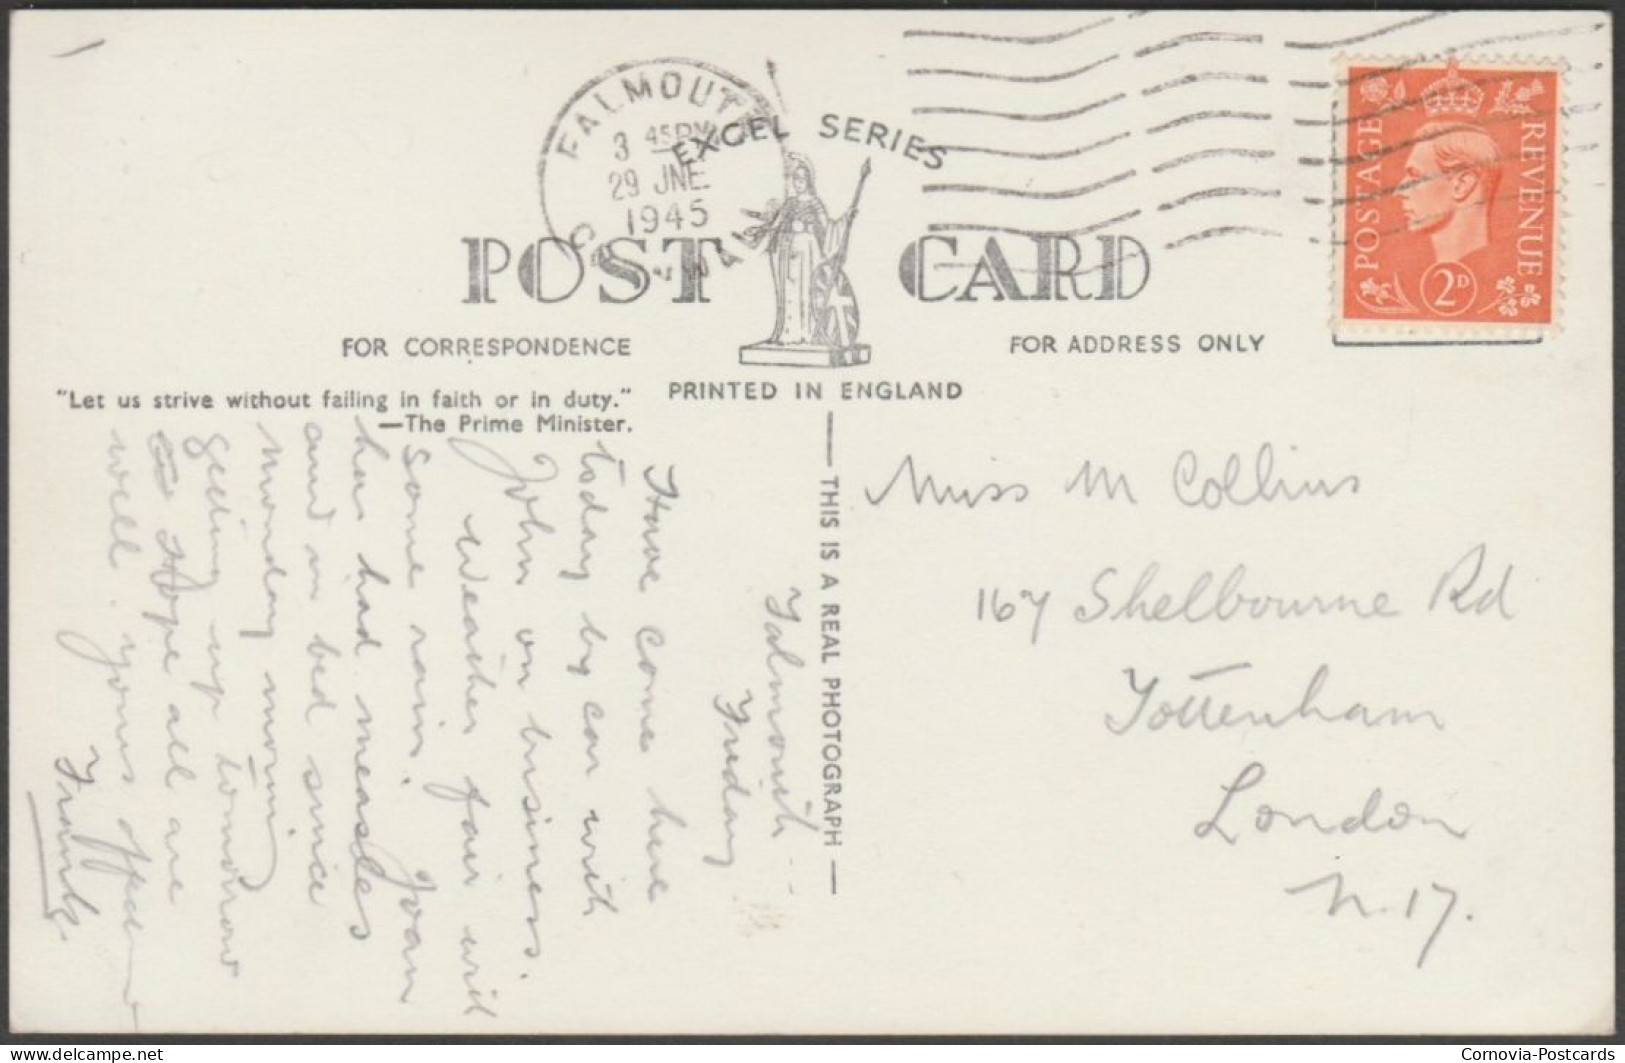 FALMOUTH
3 45PM
29 JNE
1945
CORNWALL
EXCEL SERIES
POST CARD
FOR CORRESPONDENCE
FOR ADDRESS ONLY
PRINTED IN ENGLAND
"Let us strive without failing in faith or in duty."
—The Prime Minister.
— THIS IS A REAL PHOTOGRAPH —
POSTAGE REVENUE
2D
Falmouth
Friday
Have come here
today by car with
John on business.
Weather fair with
some rain. Joan
has had measles
and in bed since
Monday morning
getting up tomorrow
Hope all are
well. Yours
Frank
Miss M Collins
167 Shelbourne Rd
Tottenham
London
N.17.
Cornovia-Postcards
www.delcampe.net